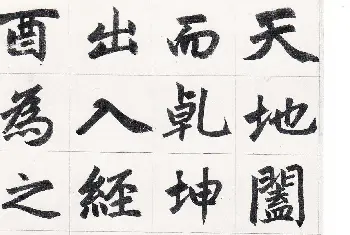 天地闔
而乹坤
出入經
酉為之